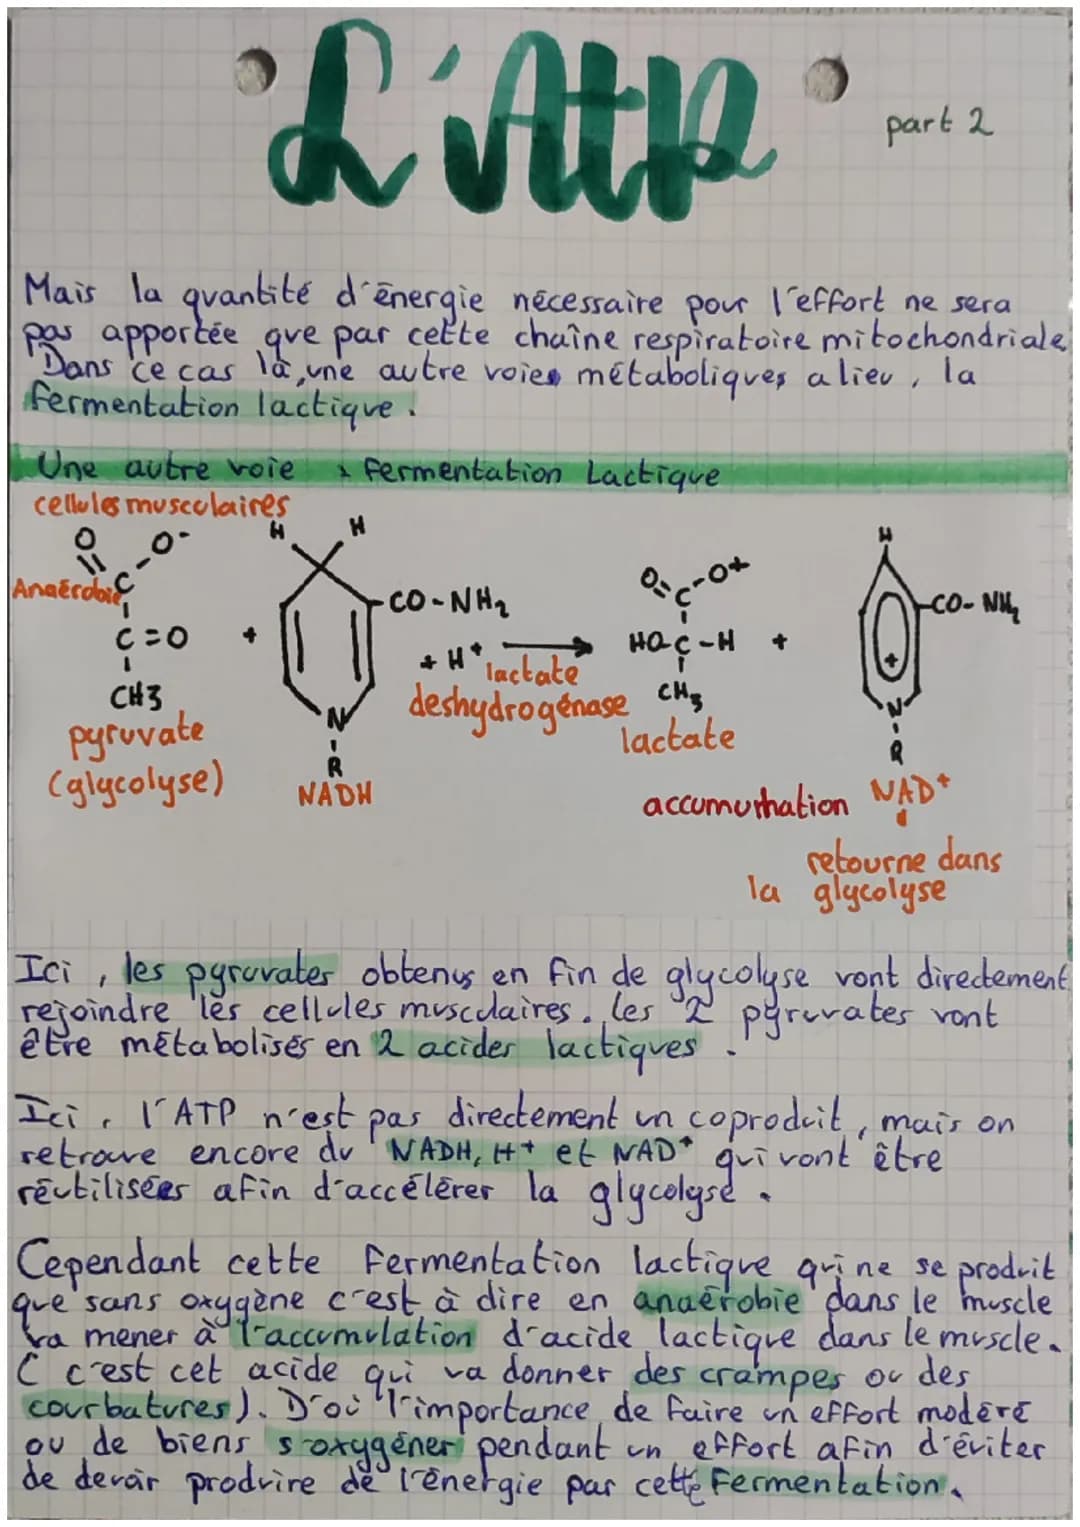 L'Atp
part 2
Mais la quantité d'énergie nécessaire pour l'effort ne sera
pas apportée que par cette chaîne respiratoire mitochondriale
Dans ce cas là, une autre voies métaboliques a lieu, la
fermentation lactique.
Une autre voie : fermentation Lactique
cellules musculaires
Anaérobie
O O-
C
C=O
CH3
pyruvate
(glycolyse)
+
H H
CO-NH2
N
R
NADH
+ H+
lactate
deshydrogénase
O O+
C
HO C-H
CH3
lactate
+
H
CO-NH2
+
N
R
NAD+
retourne dans
la glycolyse
Ici, les pyruvates obtenus en fin de glycolyse vont directement
rejoindre les cellules musculaires. les 2 pyruvates vont
être métabolisés en 2 acides lactiques.
Ici, l'ATP n'est pas directement un coproduit, mais on
retrouve encore du NADH, H+ et NAD+ qui vont être
réutilisées afin d'accélérer la glycolyse.
Cependant cette fermentation lactique qui ne se produit
que sans oxygène c'est à dire en anaérobie dans le muscle
va mener à l'accumulation d'acide lactique dans le muscle.
( c'est cet acide qui va donner des crampes ou des
courbatures). D'où l'importance de faire un effort modéré
ou de biens s'oxygéner pendant un effort afin d'éviter
de devoir produire de l'énergie par cette Fermentation.